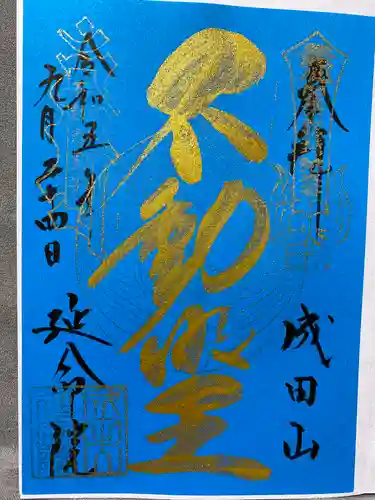 奉拝
成田山
不動明王
令和五年
九月二十四日
延命院